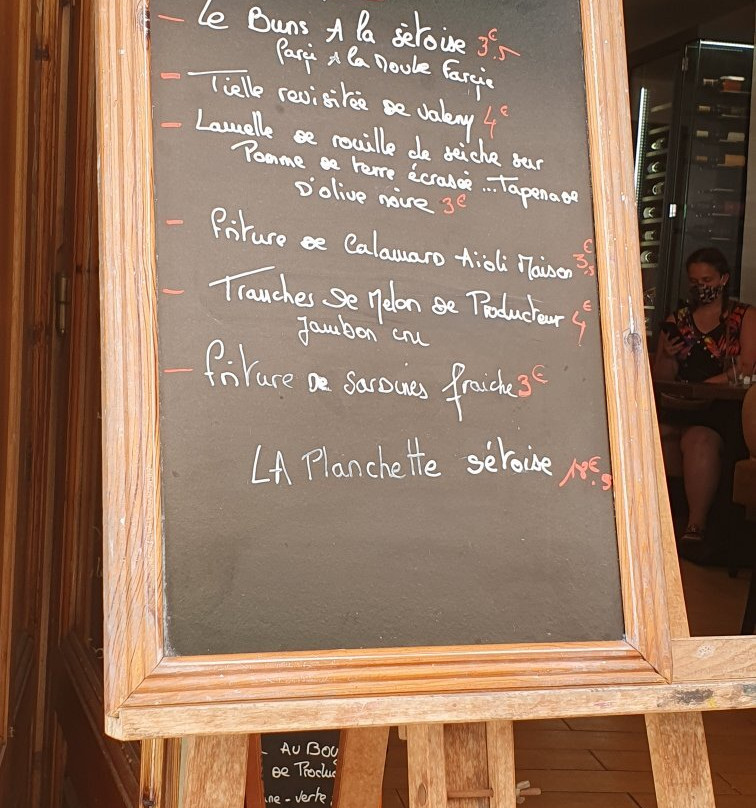 - Le Buns A la sètoise 3€.5
Parçi A la Moule Farçie
- Tielle revisitée de valeny 4€
- Lamelle de rouille de seiche sur
Pomme de terre écrasée ... Tapenade
D'olive noire 3€
- Friture de Calamard Aïoli Maison 3€.5
- Tranches De Melon de Producteur 4€
Jambon cru
- friture De Sardines fraiche 3€
LA Planchette sétoise 18€.5
- AU BOU
de Produc
ne - verte